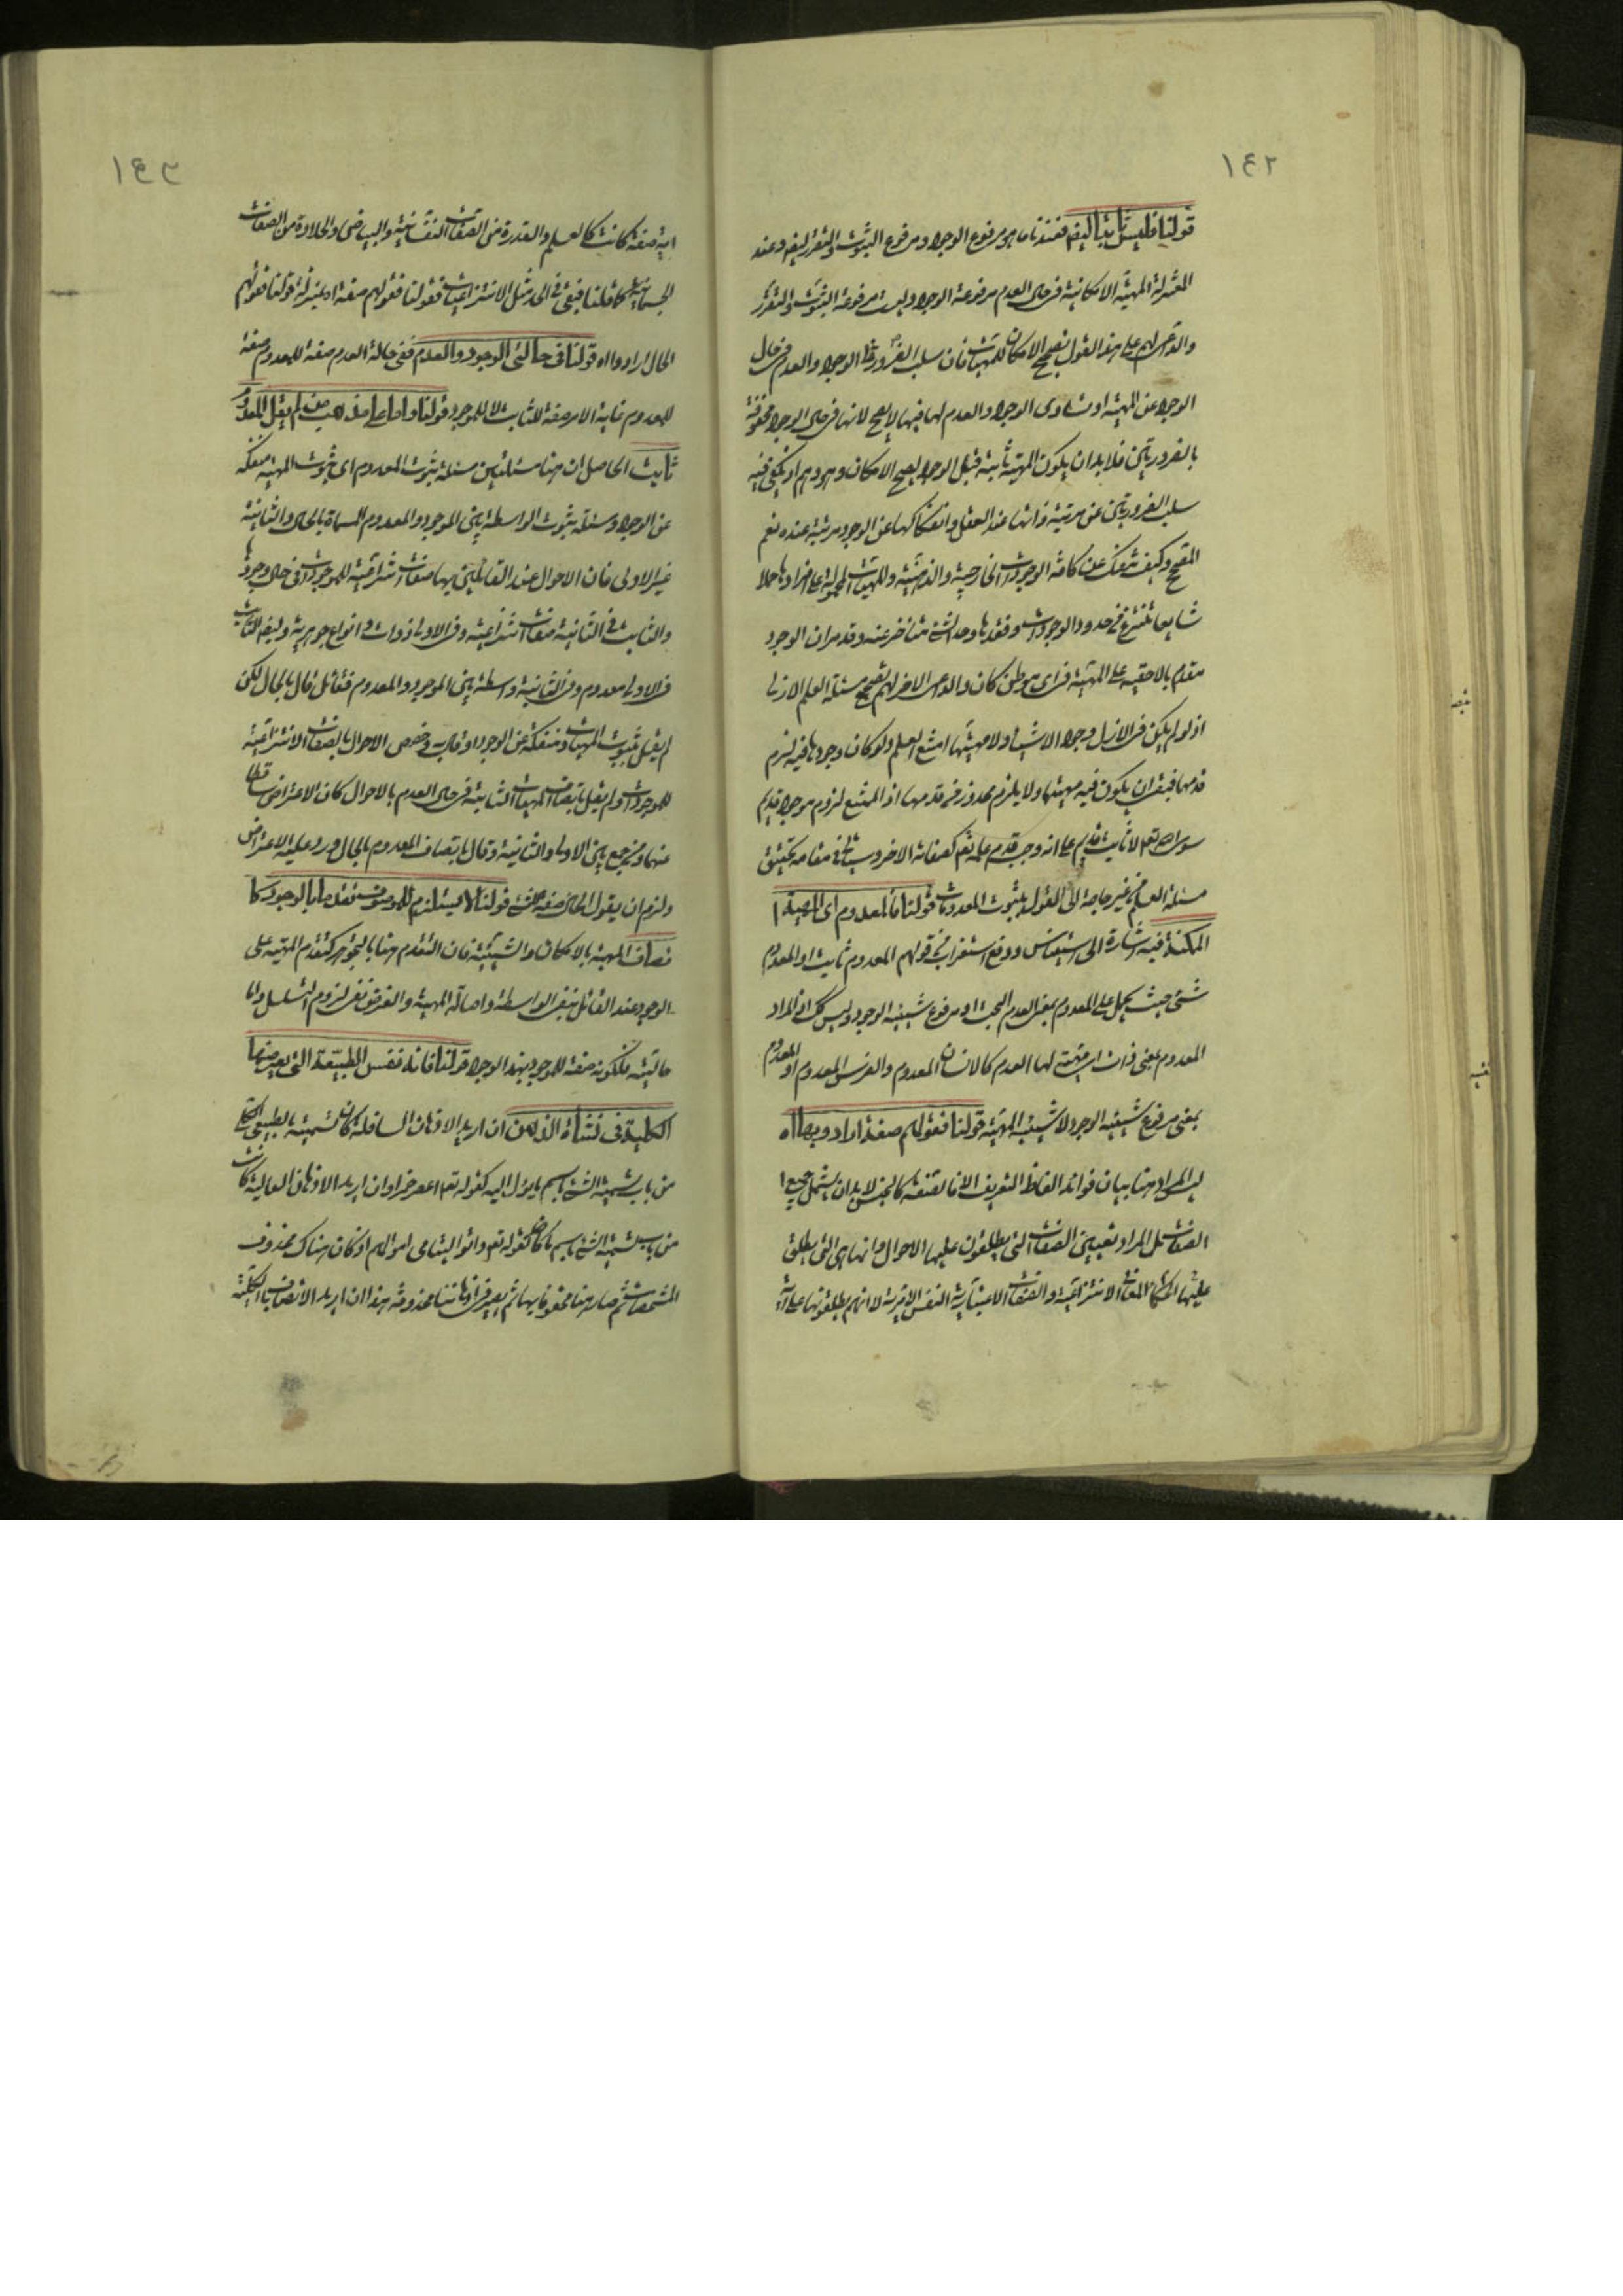 ١٤٢
قولنا فليس ثابتا ايضا فعندنا ما هو مرفوع الوجود مرفوع الثبوت والتقرر ايضا وعند
المعتزلة المهية الامكانية في حال العدم مرفوعة الوجود وليست مرفوعة الثبوت والتقرر
والداعى لهم على هذا القول تصحيح الامكان للمهيات فان سلب الضرورة الوجود والعدم في حال
الوجود عن المهية او تساوى الوجود والعدم لها فيها لا يصح لانها في حال الوجود محفوفة
بالضرورتين فلا بد ان يكون المهية ثابتة قبل الوجود ليصح الامكان وهو وهم اذ يكفى فيه
سلب الضرورتين عن مرتبة ذاتها عند العقل وانفكاكها عن الوجود مرتبة عنده نعم
المقبح وكيف تنفك عن كافة الوجودات الخارجية والذهنية وللمهيات المحمولة على افرادها حملا
شايعا تنتزع في حدود الوجودات وفقدها وحد الشئ متاخر عنه وقد مر ان الوجود
مقدم بالاحقية على المهية في اى موطن كان والداعى الاخر لهم تصحيح مسئلة العلم الازلى
اذ لو لم يكن في الازل وجود الاشياء ولا مهيتها امتنع العلم ولو كان وجودها فيه لزم
قدمها فبقى ان يكون فيه مهيتها ولا يلزم محذور في قدمها اذ الممتنع لزوم موجود قديم
سوى الله تعالى لا ثابت قديم على انه وجب قدم علمه تعم كصفاته الاخر وسياتى في مقامه تحقيق
مسئلة العلم من غير حاجة الى القول بثبوت المعدومات قولنا فالمعدوم اى المهية
الممكنة فيه اشارة الى استيناس ودفع استغراب من قولهم المعدوم ثابت او المعدوم
شئ حيث يحمل على المعدوم بمعنى العدم البحت او مرفوع شيئية الوجود وليس كك اذ المراد
المعدوم بمعنى ذات ومهية لها العدم كالانسان المعدوم والفرس المعدوم او المعدوم
بمعنى مرفوع شيئية الوجود لا شيئية المهية قولنا فقولهم صفة ارادوا بها اه
ليس المراد هنا بيان فوائد الفاظ التعريف الا فالصفة كالجنس لا بد ان يشمل جميع
الصفات بل المراد تعيين الصفات التى يطلقون عليها الاحوال وانها هى التى يطلق
عليها الحكماء المعانى الانتزاعية والصفات الاعتبارية النفس الامرية لا انهم يطلقونها على اية
١٤٣
اية صفة كانت كالعلم والقدرة من الصفات النفسانية والبياض والحلاوة من الصفات
الجسمانية كما قلنا فبقى في الحد مثل الانتزاعيات فقولنا فقولهم صفة اه بمنزلة قولنا فقولهم
الحال ارادوا اه قولنا في حالتى الوجود والعدم ففى حالة العدم صفة للمعدوم صفة
للمعدوم غاية الامر صفة للثابت لا للموجود قولنا واما على مذهب من لم يقل المعدوم
ثابت الحاصل ان هنا مسئلتين مسئلة ثبوت المعدوم اى ثبوت المهية منفكة
عن الوجود ومسئلة ثبوت الواسطة بين الموجود والمعدوم المسماة بالحال والثانية
غير الاولى فان الاحوال عند القائلين بها صفات انتزاعية للموجودات في حال وجودها
والثابت في الثانية صفات انتزاعية وفى الاولى ذوات وانواع جوهرية وايضا الثابت
فى الاولى معدوم وفى الثانية واسطة بين الموجود والمعدوم فقائل قال بالحال لكن
لم يقل بثبوت المهيات منفكة عن الوجود او قال به وخصص الاحوال بالصفات الانتزاعية
للموجودات ولم يقل باتصاف المهيات الثابتة في حال العدم بالاحوال كان الاعتراض ساقطا
عنهما ومن جمع بين الاولى والثانية وقال باتصاف المعدوم بالحال ورد عليه الاعتراض
ولزم ان يقول الحال صفة للشئ قولنا لا يستلزم للموصوف تقدما بالوجود كا
تصاف المهية بالامكان والشيئية فان التقدم هنا بالتجوهر كتقدم المهية على
الوجود عند القائل بنفى الواسطة واصالة المهية والفرق نفى لزوم التسلسل واما
حاليته فلكونه صفة للموجود بهذا الوجود قولنا فانه نفس الطبيعة التى يعرضها
الكلية فى نشاة الذهن ان اريد الاذهان السافلة كان تسميته بالطبيعى الكلى
من باب تسمية الشئ باسم ما يؤل اليه كقوله تعم اعصر خمرا وان اريد الاذهان العالية كانت
من باب تسمية الشئ باسم ما كان كقوله تعم واتوا اليتامى اموالهم اذ كان هناك محذوف
المشخصات ثم صار هنا محفوفا بها ثم يصير في اذهاننا محذوفة هذا ان اريد الاتصاف بالكلية